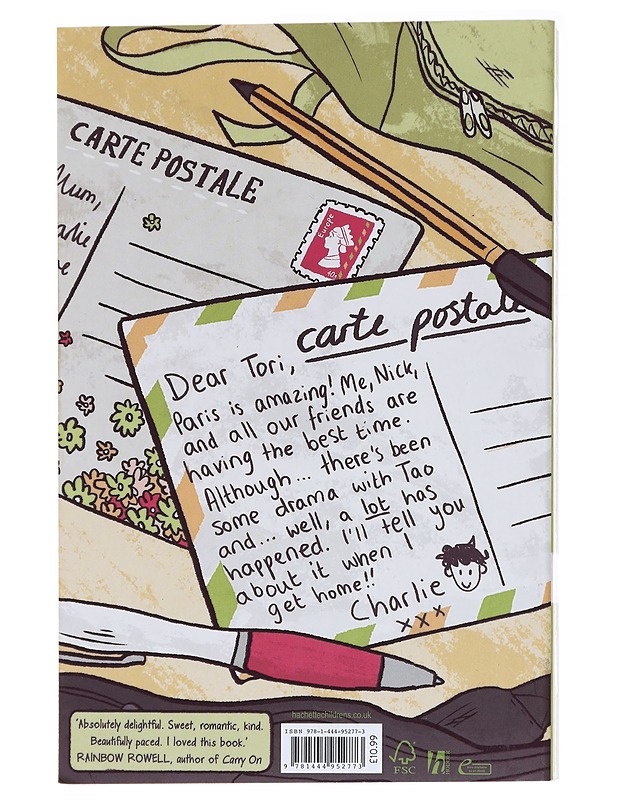 CARTE POSTALE
Mum,
Europe
carte postale
Dear Tori,
Paris is amazing! Me, Nick,
and all our friends are
having the best time.
Although... there's been
some drama with Tao
and... well, a lot has
happened. I'll tell you
about it when I
get home!!
Charlie
xxx
'Absolutely delightful. Sweet, romantic, kind.
Beautifully paced. I loved this book.'
RAINBOW ROWELL, author of Carry On
hachettechildrens.co.uk
ISBN 978-1-444-95277-3
9 781444 952773
£10.99
FSC
h
e